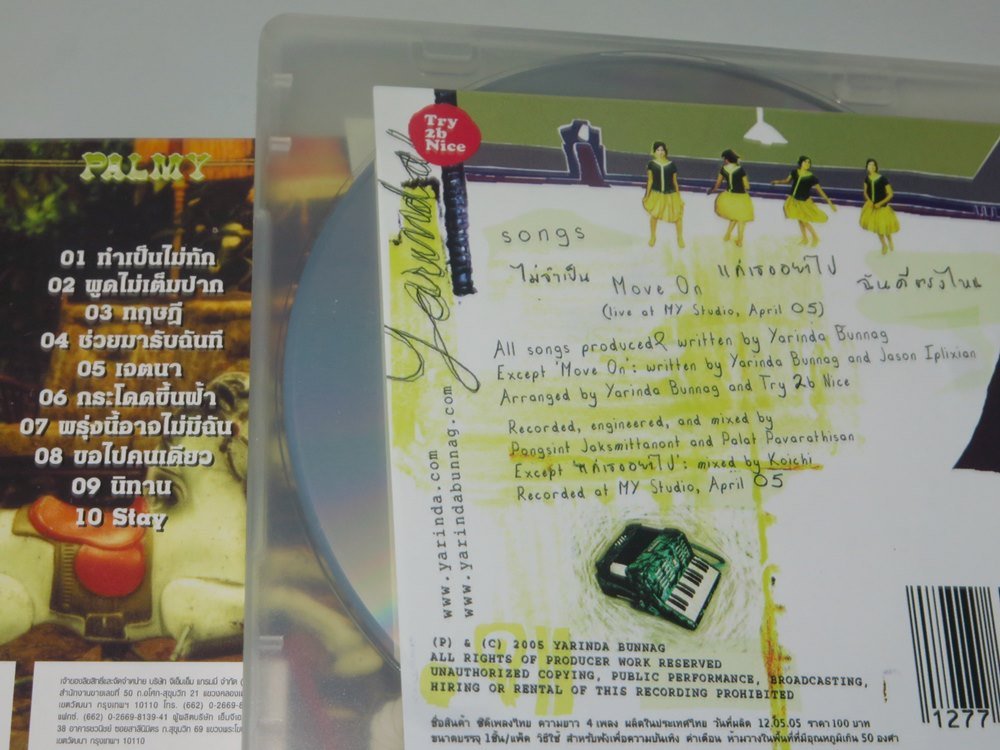 PALMY
01 ทำเป็นไม่ทัก
02 พูดไม่เต็มปาก
03 ทฤษฎี
04 ช่วยมารับฉันที
05 เจตนา
06 กระโดดขึ้นฟ้า
07 พรุ่งนี้อาจไม่มีฉัน
08 ขอไปคนเดียว
09 นิทาน
10 Stay
เจ้าของลิขสิทธิ์และจัดจำหน่าย บริษัท จีเอ็มเอ็ม แกรมมี่ จำกัด (
สำนักงานขายเลขที่ 50 ถ.อโศก-สุขุมวิท 21 แขวงคลองเตย
เขตวัฒนา กรุงเทพฯ 10110 โทร. (662) 0-2669-
แฟกซ์. (662) 0-2669-8139-41 ผู้ผลิตบริษัท
38 อาคารชวนิชย์ ซอยสามมิตร ถ.สุขุมวิท 69
เขตวัฒนา กรุงเทพฯ 10110
Try
2b
Nice
Yarinda
songs
ไม่จำเป็น Move On แค่เธออย่าไป ฉันดีตรงไหน
(live at MY Studio, April 05)
All songs produced & written by Yarinda Bunnag
Except 'Move On': written by Yarinda Bunnag and Jason Iplixian
Arranged by Yarinda Bunnag and Try 2b Nice
Recorded, engineered, and mixed by
Pongsint Jaksmittanont and Palat Pavarathisan
Except 'แค่เธออย่าไป': mixed by Koichi
Recorded at MY Studio, April 05
www.yarinda.com
www.yarindabunnag.com
(P) & (C) 2005 YARINDA BUNNAG
ALL RIGHTS OF PRODUCER WORK RESERVED
UNAUTHORIZED COPYING, PUBLIC PERFORMANCE, BROADCASTING,
HIRING OR RENTAL OF THIS RECORDING PROHIBITED
ชื่อสินค้า ซีดีเพลงไทย ความยาว 4 เพลง ผลิตในประเทศไทย วันที่ผลิต 12.05.05 ราคา 100 บาท
ขนาดบรรจุ 1ชิ้น/แพ็ค วิธีใช้ สำหรับฟังเพื่อความบันเทิง คำเตือน ห้ามวางในพื้นที่ที่มีอุณหภูมิเกิน 50 องศา
1277